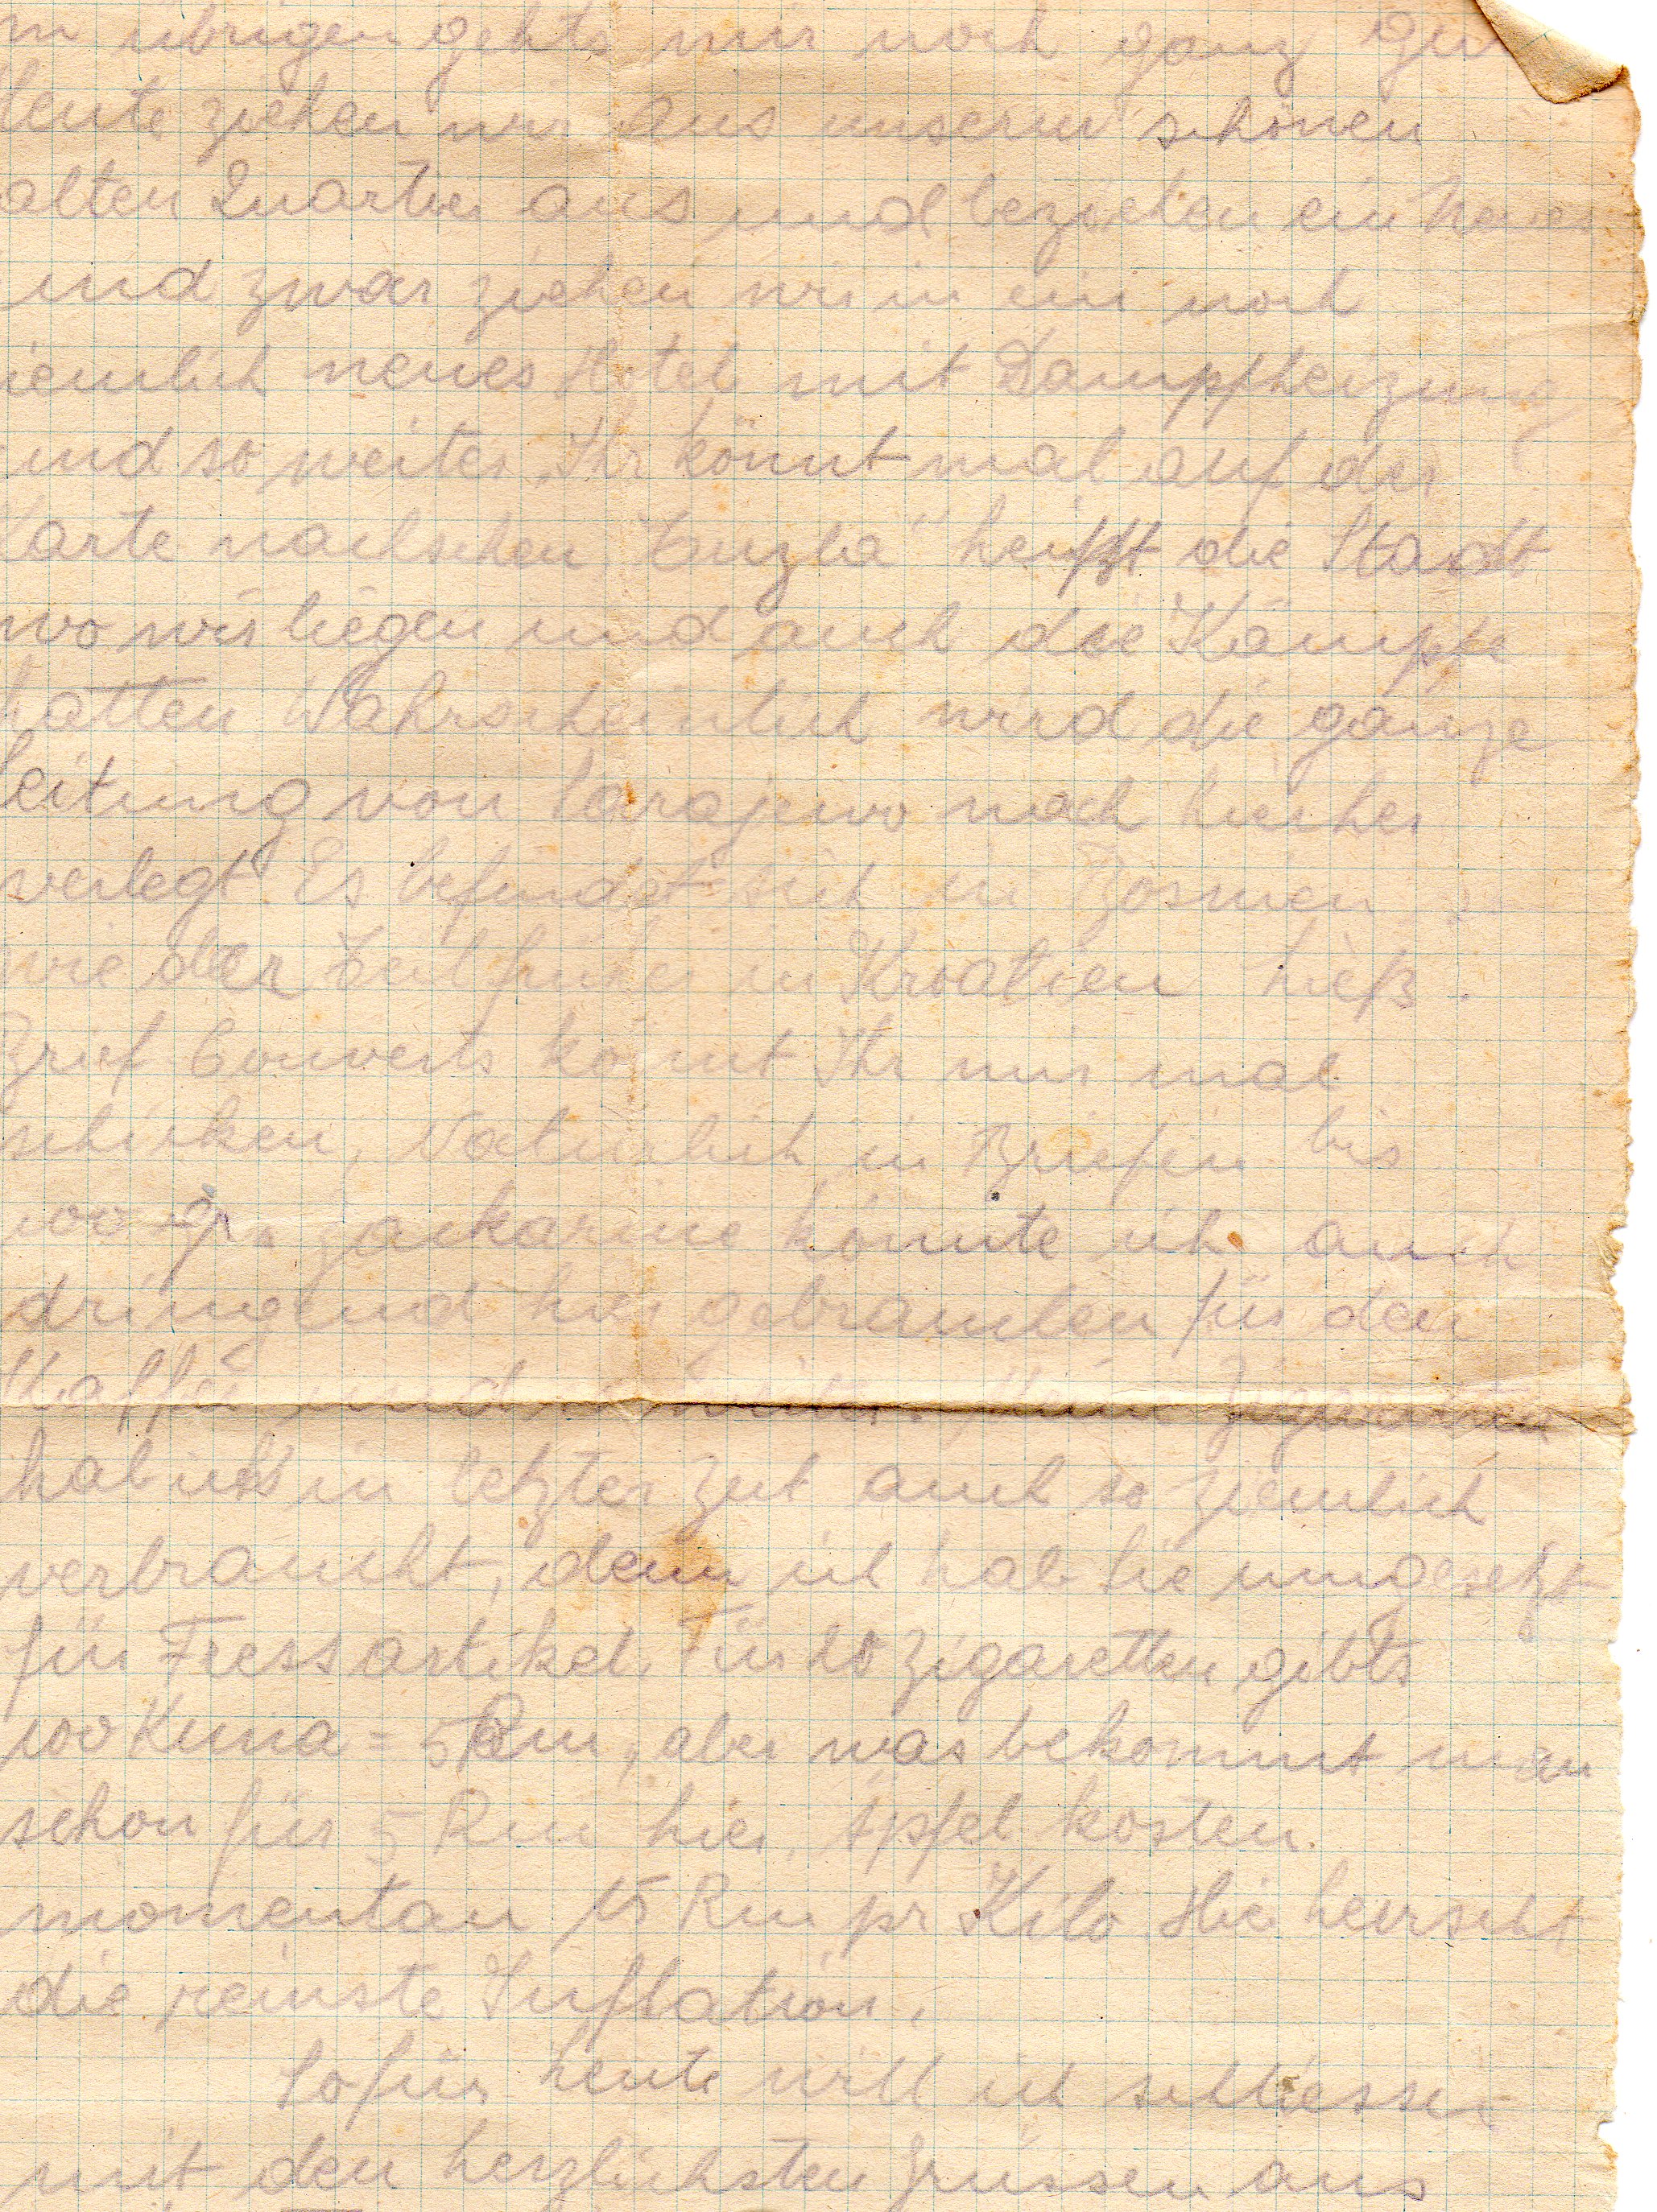 m übrigen gehts mir noch ganz gut
Heute ziehen wir aus unserm schönen
alten Quartier aus und beziehen ein neues
und zwar ziehen wir in ein noch
iemlich neues Hotel mit Dampfheizung
und so weiter. Ihr könnt mal auf der
Karte nachsehen „Tuzla" heißt die Stadt
wo wir liegen und auch die Kämpfe
hatten Wahrscheinlich wird die ganze
Leitung von Sarajewo nach hierher
verlegt Es befindet sich in Bosnien
wie der Teil früher in Kroatien hieß.
Brief Couverts könnt Ihr mir mal
schicken, Natürlich in Briefen bis
100 gr. Zackarine könnte ich auch
dringend hier gebrauchen für den
Kaffee und so weiter. Meine Zigaretten
hab ich in letzter Zeit auch so ziemlich
verbraucht, denn ich hab sie umgesetzt
für Fressartikel. Für 20 Zigaretten gibts
100 Kuna = 5 Rm, aber was bekommt man
schon für 5 Rm hier, Äpfel kosten
momentan 15 Rm pr Kilo. Hier herrscht
die reinste Inflation.
So für heute will ich schliessen
mit den herzlichsten Grüssen aus